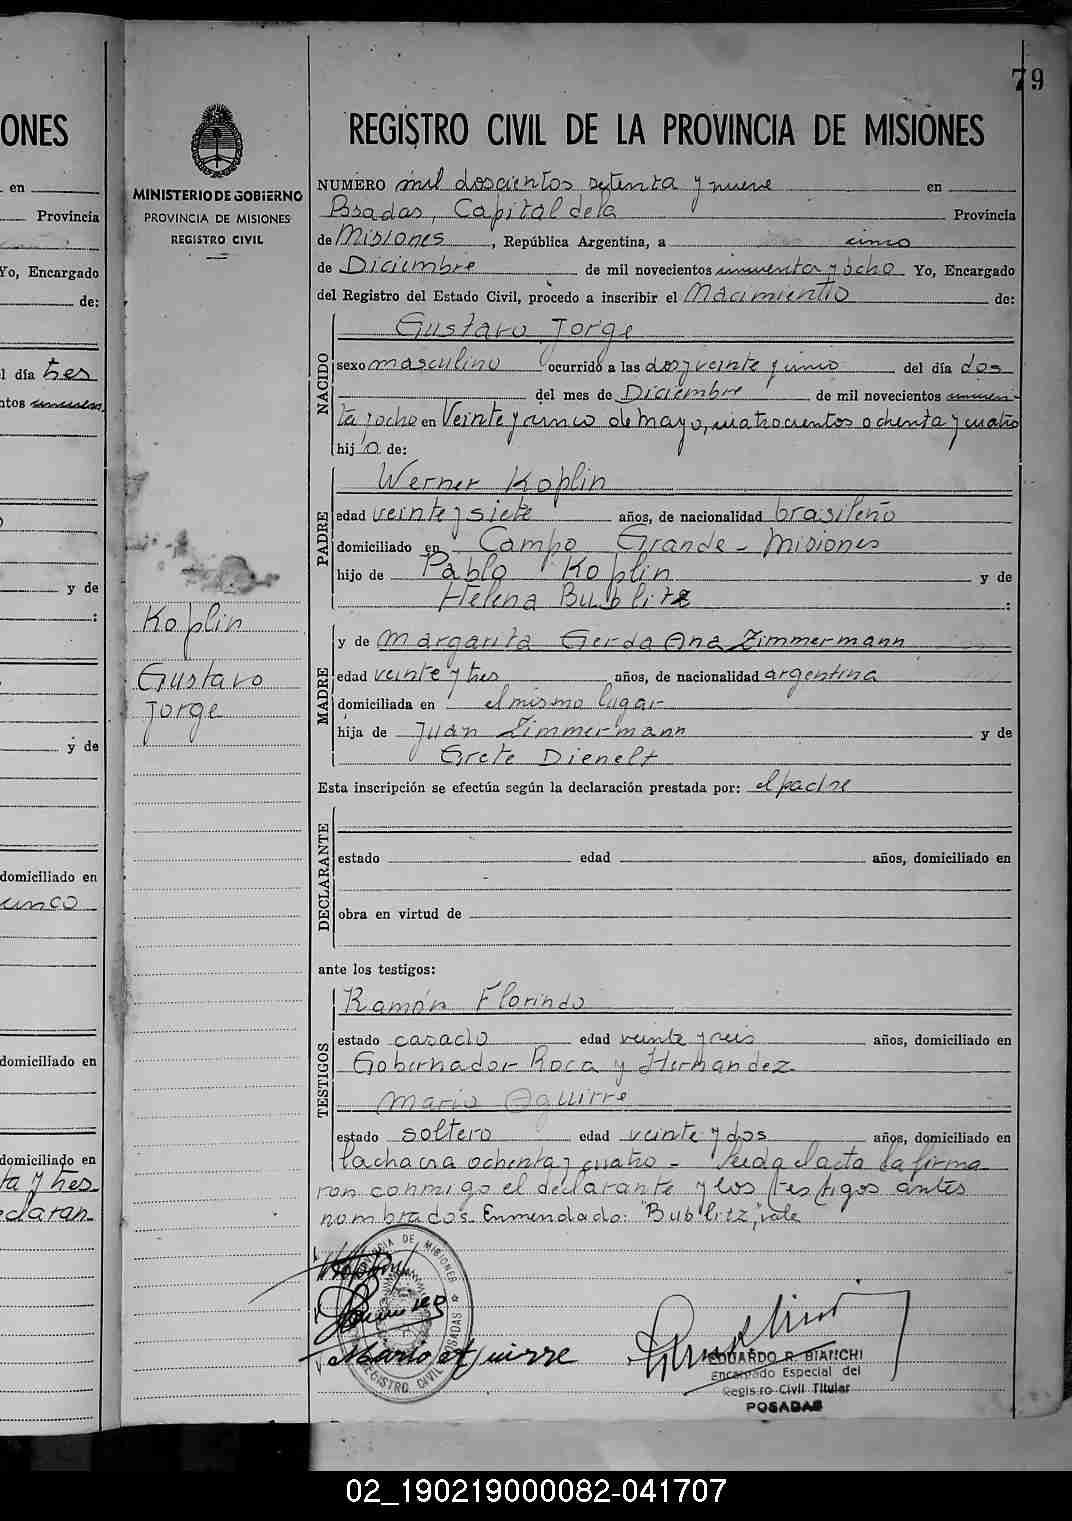 79
ONES
en
Provincia
Yo, Encargado
de:
l día tres
ntos
y de
:
y de
domiciliado en
cinco
domiciliado en
domiciliado en
ta y tres
claran
MINISTERIO DE GOBIERNO
PROVINCIA DE MISIONES
REGISTRO CIVIL
Koplin
Gustavo
Jorge
REGISTRO CIVIL DE LA PROVINCIA DE MISIONES
NUMERO mil doscientos setenta y nueve en
Posadas, Capital de la Provincia
de Misiones, República Argentina, a cinco
de Diciembre de mil novecientos cincuenta y ocho Yo, Encargado
del Registro del Estado Civil, procedo a inscribir el Nacimiento de:
NACIDO
Gustavo Jorge
sexo masculino ocurrido a las dos y veinte y cinco del día dos
del mes de Diciembre de mil novecientos cincuen-
ta y ocho en Veinte y cinco de Mayo, cuatrocientos ochenta y cuatro
hijo de:
PADRE
Werner Koplin
edad veinte y siete años, de nacionalidad brasileño
domiciliado en Campo Grande - Misiones
hijo de Pablo Koplin y de
Helena Bublitz :
MADRE
y de Margarita Gerda Ana Zimmermann
edad veinte y tres años, de nacionalidad argentina
domiciliada en el mismo lugar
hija de Juan Zimmermann y de
Grete Dienelt
Esta inscripción se efectúa según la declaración prestada por: el padre
DECLARANTE
estado edad años, domiciliado en
obra en virtud de
ante los testigos:
TESTIGOS
Ramón Florindo
estado casado edad veinte y seis años, domiciliado en
Gobernador Roca y Hernandez
Mario Aguirre
estado soltero edad veinte y dos años, domiciliado en
la chacra ochenta y cuatro - Leida el acta la firma-
ron conmigo el declarante y los testigos antes
nombrados. Enmendado: "Bublitz", vale
PROVINCIA DE MISIONES
REGISTRO CIVIL POSADAS
Mario Aguirre
EDUARDO R. BIANCHI
Encargado Especial del
Registro Civil Titular
POSADAS
02_190219000082-041707